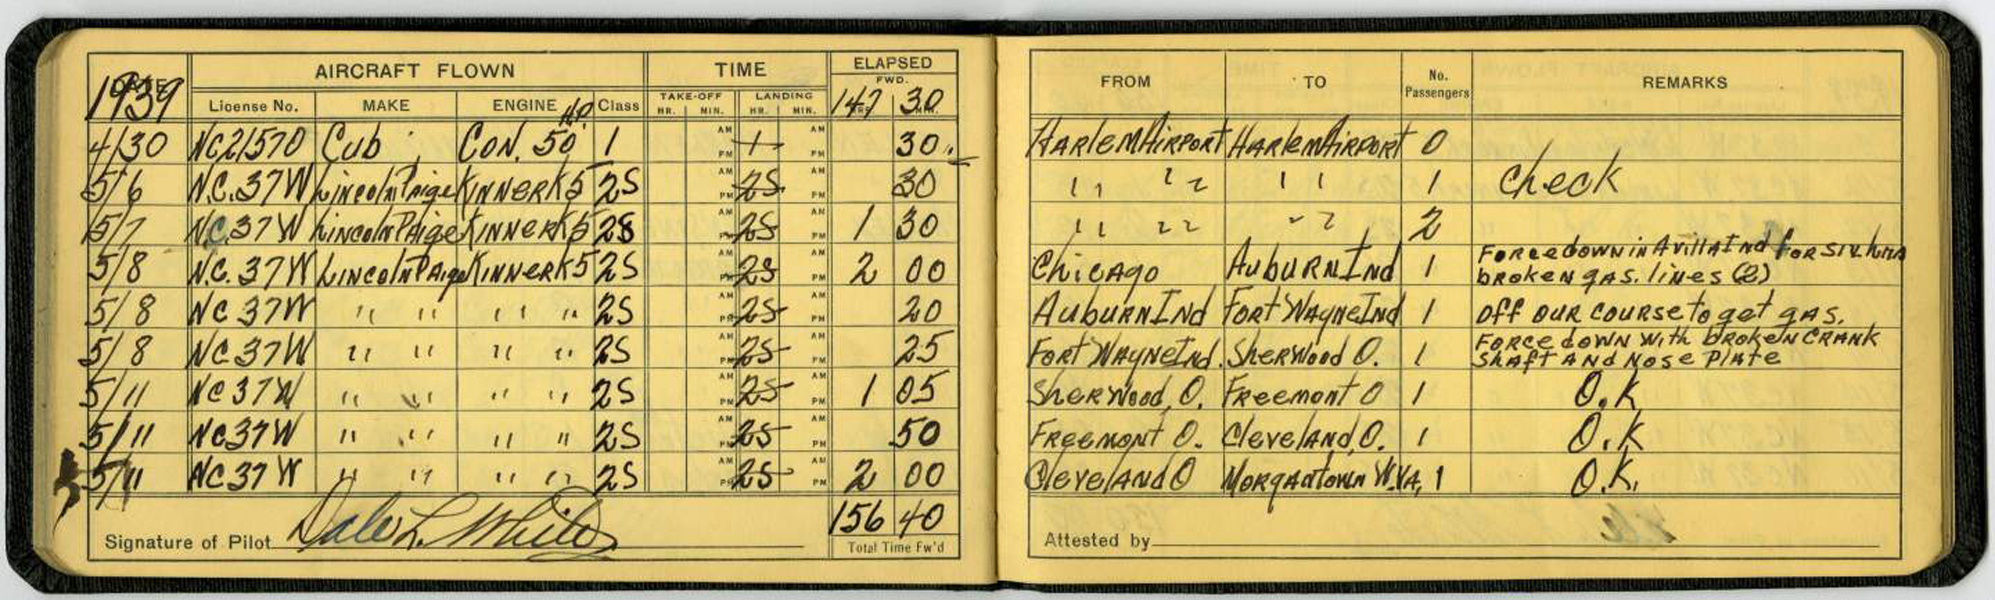 DATE AIRCRAFT FLOWN TIME ELAPSED
1939 License No. MAKE ENGINE HP. Class TAKE-OFF LANDING FWD.
HR. MIN. HR. MIN. 147 30
4/30 NC21570 Cub CON. 50 1 AM PM 1 AM PM 30
5/6 N.C. 37W Lincoln Paige KINNER K5 2S AM PM 2S AM PM 30
5/7 NC. 37W Lincoln Paige KINNER K5 2S AM PM 2S AM PM 1 30
5/8 N.C. 37W Lincoln Paige KINNER K5 2S AM PM 2S AM PM 2 00
5/8 NC 37W " " " " 2S AM PM 2S AM PM 20
5/8 NC 37W " " " " 2S AM PM 2S AM PM 25
5/11 NC 37W " " " " 2S AM PM 2S AM PM 1 05
5/11 NC 37W " " " " 2S AM PM 2S AM PM 50
5/11 NC 37W " " " " 2S AM PM 2S AM PM 2 00
156 40
Signature of Pilot Dale L. White Total Time Fw'd
FROM TO No. Passengers REMARKS
Harlem Airport Harlem Airport 0
" " " 1 Check
" " " 2
Chicago Auburn Ind 1 Force down in Avilla Ind for six hrs
broken gas. lines (2)
Auburn Ind Fort Wayne Ind 1 off our course to get gas.
Fort Wayne Ind. Sherwood O. 1 Force down with broken crank
shaft and nose plate
Sherwood, O. Freemont O 1 O.K
Freemont O. Cleveland, O. 1 O.K
Cleveland O Morgantown W.VA, 1 O.K.
Attested by